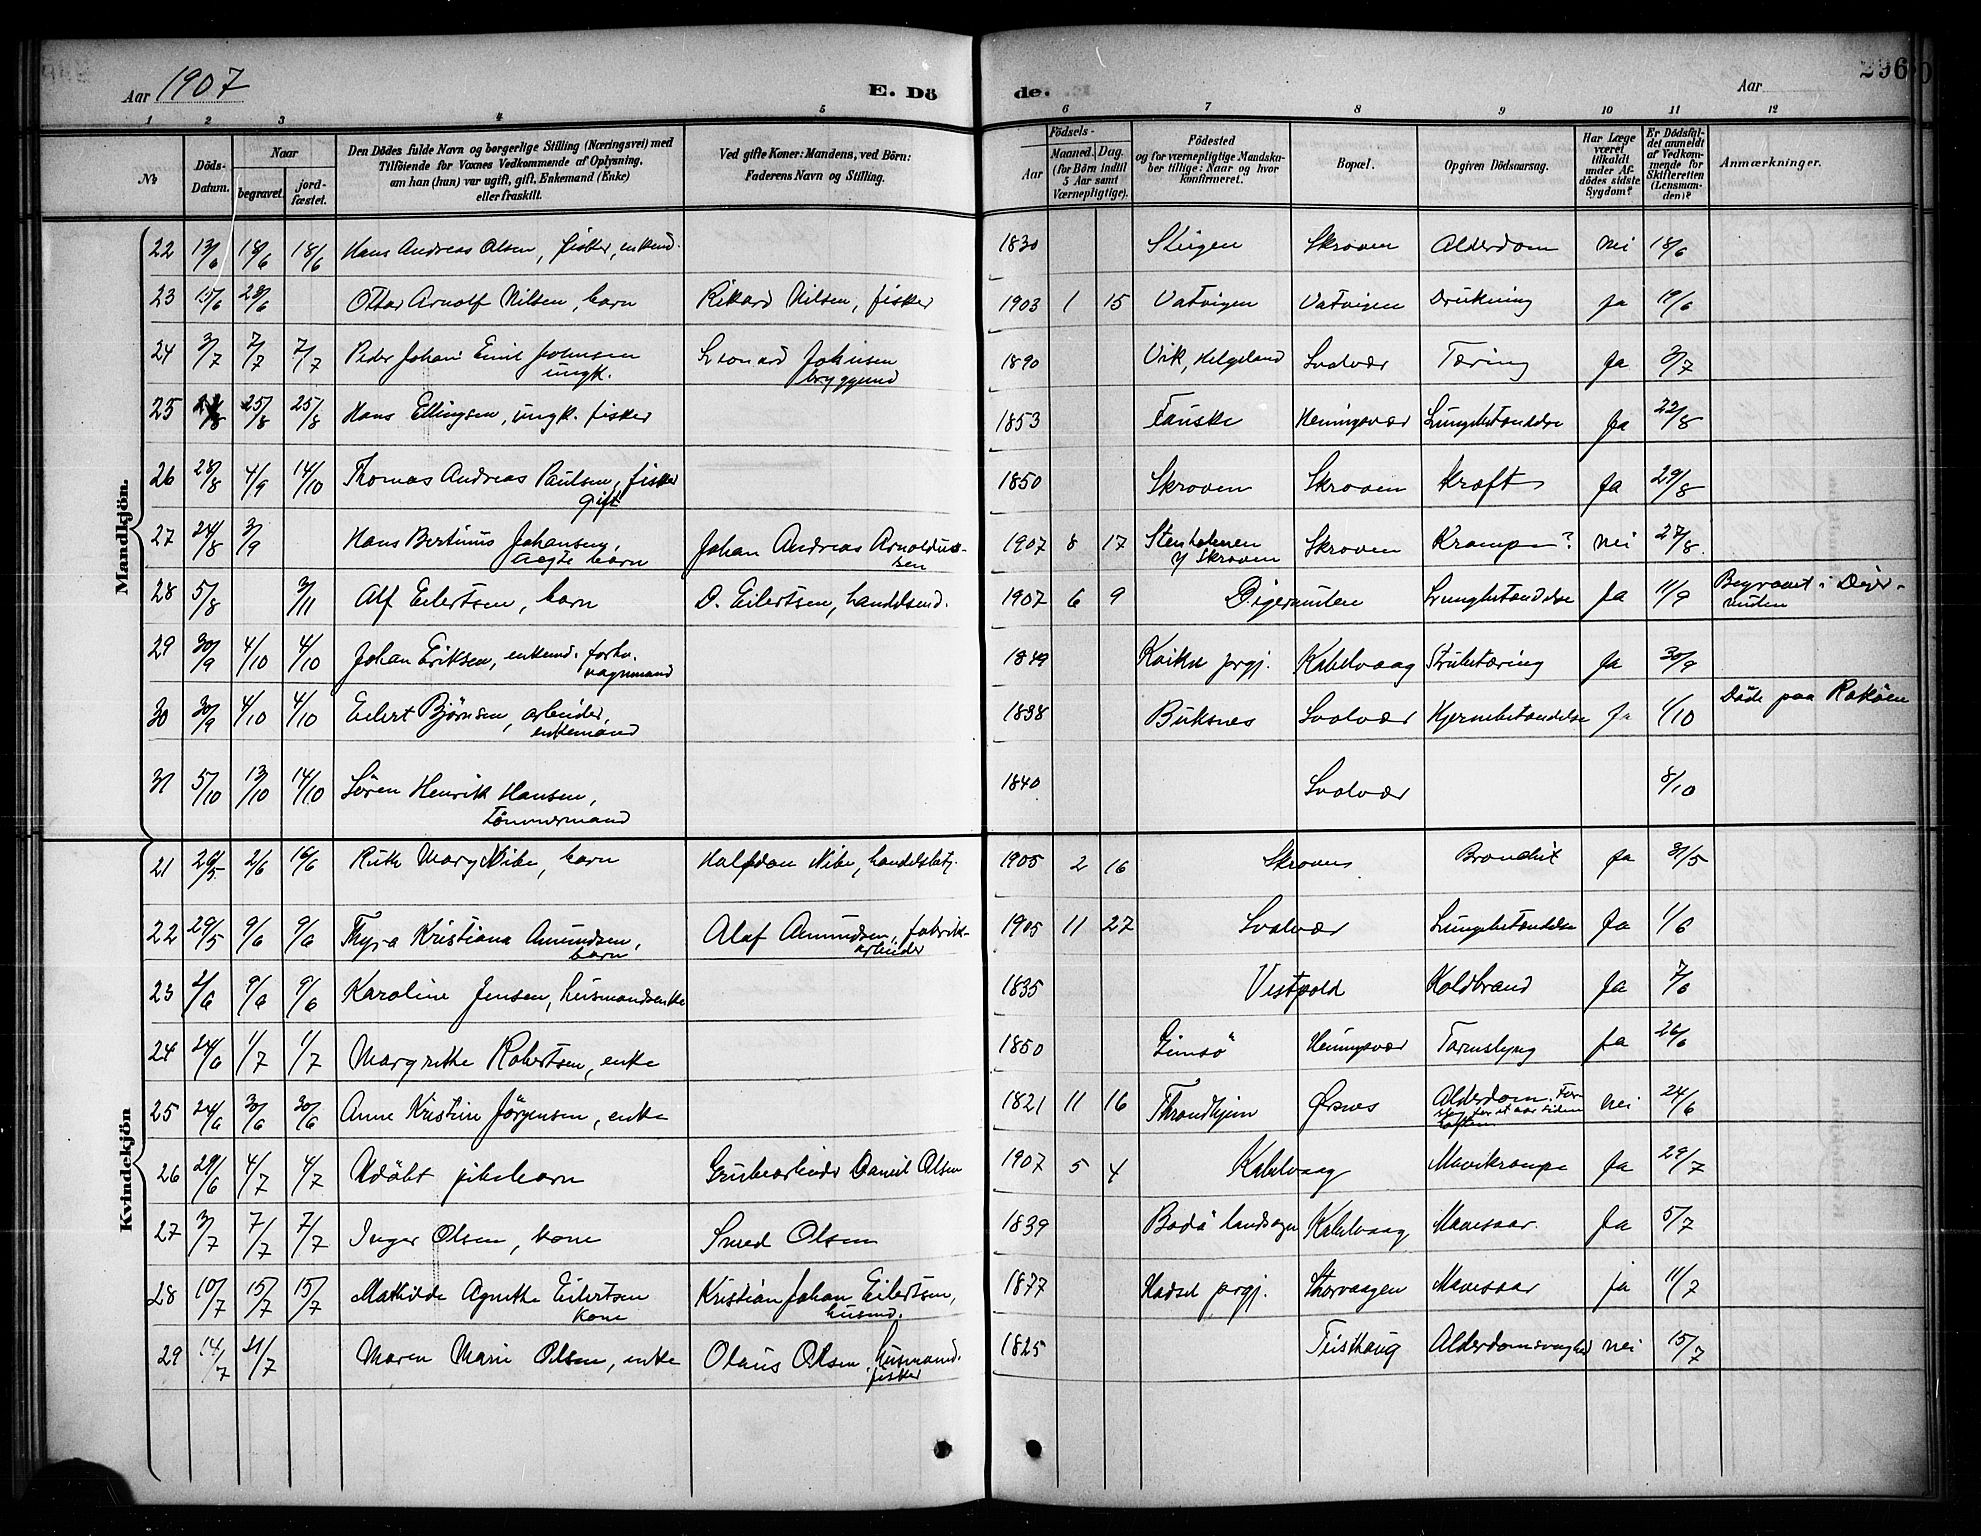 Aar 1907
E. Dö
de.
Aar
296
1 2 3 4 5 6 7 8 9 10 11 12
No
Döds-
Datum.
Naar
begravet.
jord-
fæstet.
Den Dödes fulde Navn og borgerlige Stilling (Næringsvei) med
Tilföiende for Voxnes Vedkommende af Oplysning,
om han (hun) var ugift, gift, Enkemand (Enke)
eller fraskilt.
Ved gifte Koner: Mandens, ved Börn:
Faderens Navn og Stilling.
Födsels-
Aar
Maaned. Dag.
(for Börn indtil
5 Aar samt
Værnepligtige).
Födested
og for værnepligtige Mandska-
ber tillige: Naar og hvor
konfirmeret.
Bopæl.
Opgiven Dödsaarsag.
Har Læge
været
tilkaldt
under Af-
dödes sidste
Sygdom?
Er Dödsfal-
det anmeldt
af Vedkom-
mende for
Skifteretten
(Lensman-
den)?
Anmærkninger.
Mandkjön.
22 13/6 18/6 18/6 Hans Andreas Olsen, fisker, enkemd. 1830 Steigen Skroven Alderdom nei 18/6
23 15/6 23/6 Ottar Arnolf Nilsen, barn Rikard Nilsen, fisker 1903 1 15 Vatvigen Vatvigen Drukning ja 19/6
24 3/7 7/7 7/7 Peder Johan Emil Johnsen Leonard Johnsen 1890 Vik, Helgeland Svolvær Tæring Ja 3/7
ungk. bryggemd
25 25/8 25/8 Hans Ellingsen, ungk. fisker 1853 Fauske Henningsvær Lungebetændelse Ja 22/8
26 28/8 4/9 14/10 Thomas Andreas Paulsen, fisker 1850 Skroven Skroven Kræft Ja 29/8
gift
27 24/8 3/9 Hans Bertinus Johansen, Johan Andreas Arnoldus- 1907 8 17 Stenholmen Skroven Krampe? nei 27/8
ægte barn sen Skroven
28 5/8 3/11 Alf Eilertsen, barn D. Eilertsen, handelsmd. 1907 6 9 Digermulen Lungebetændelse Ja 11/9 Begravet i Diger-
mulen
29 30/9 4/10 4/10 Johan Eriksen, enkemd. forhv. 1849 prgj. Kabelvaag Strubetæring Ja 30/9
vognmand
30 30/9 4/10 4/10 Eilert Bjørnsen, arbeider, 1838 Buksnes Svolvær Hjernebetændelse Ja 1/10 Døde paa Rotöen
enkemand
31 5/10 13/10 14/10 Søren Henrik Hansen, 1840 Svolvær 8/10
tømmermand
Kvindekjön
21 5 2/6 16/6 Ruth Mary Nibe, barn Halfdan Nibe, handelsbetj. 1905 2 16 Skroven Bronchit Ja 31/5
22 29/5 9/6 9/6 Thyra Kristiana Amundsen, Olaf Amundsen, fabrik- 1905 11 27 Svolvær Lungebetændelse Ja 1/6
barn arbeider
23 2/6 9/6 9/6 Karoline Jensen, husmandsenke 1835 Vestpold Koldbrand Ja 7/6
24 24/6 1/7 1/7 Margrethe Robertsen, enke 1850 Gimsö Henningsvær Tarmslyng Ja 26/6
25 24/6 30/6 30/6 Anne Kristine Jörgensen, enke 1821 11 16 Throndhjem Ørsnes Alderdom. For- nei 24/6
slog for et aar siden
hoften
26 29/6 4/7 4/7 Udöbt pikebarn Grubearbeider Daniel Olsen 1907 5 4 Kabelvaag Mavekrampe Ja 29/7
27 3/7 7/7 7/7 Inger Olsen, kone Smed Olsen 1839 Bodö landsogn Kabelvaag Mavesaar Ja 5/7
28 10/7 15/7 15/7 Mathilde Agnethe Eilertsen Kristian Johan Eilertsen, 1877 Hadsel prgj. Storvaagen Mavesaar ja 11/7
kone husmd.
29 14/7 21/7 Maren Marie Olsen, enke Olaus Olsen, husmand. 1825 Teisthaug Alderdomsvaghed nei 15/7
fisker